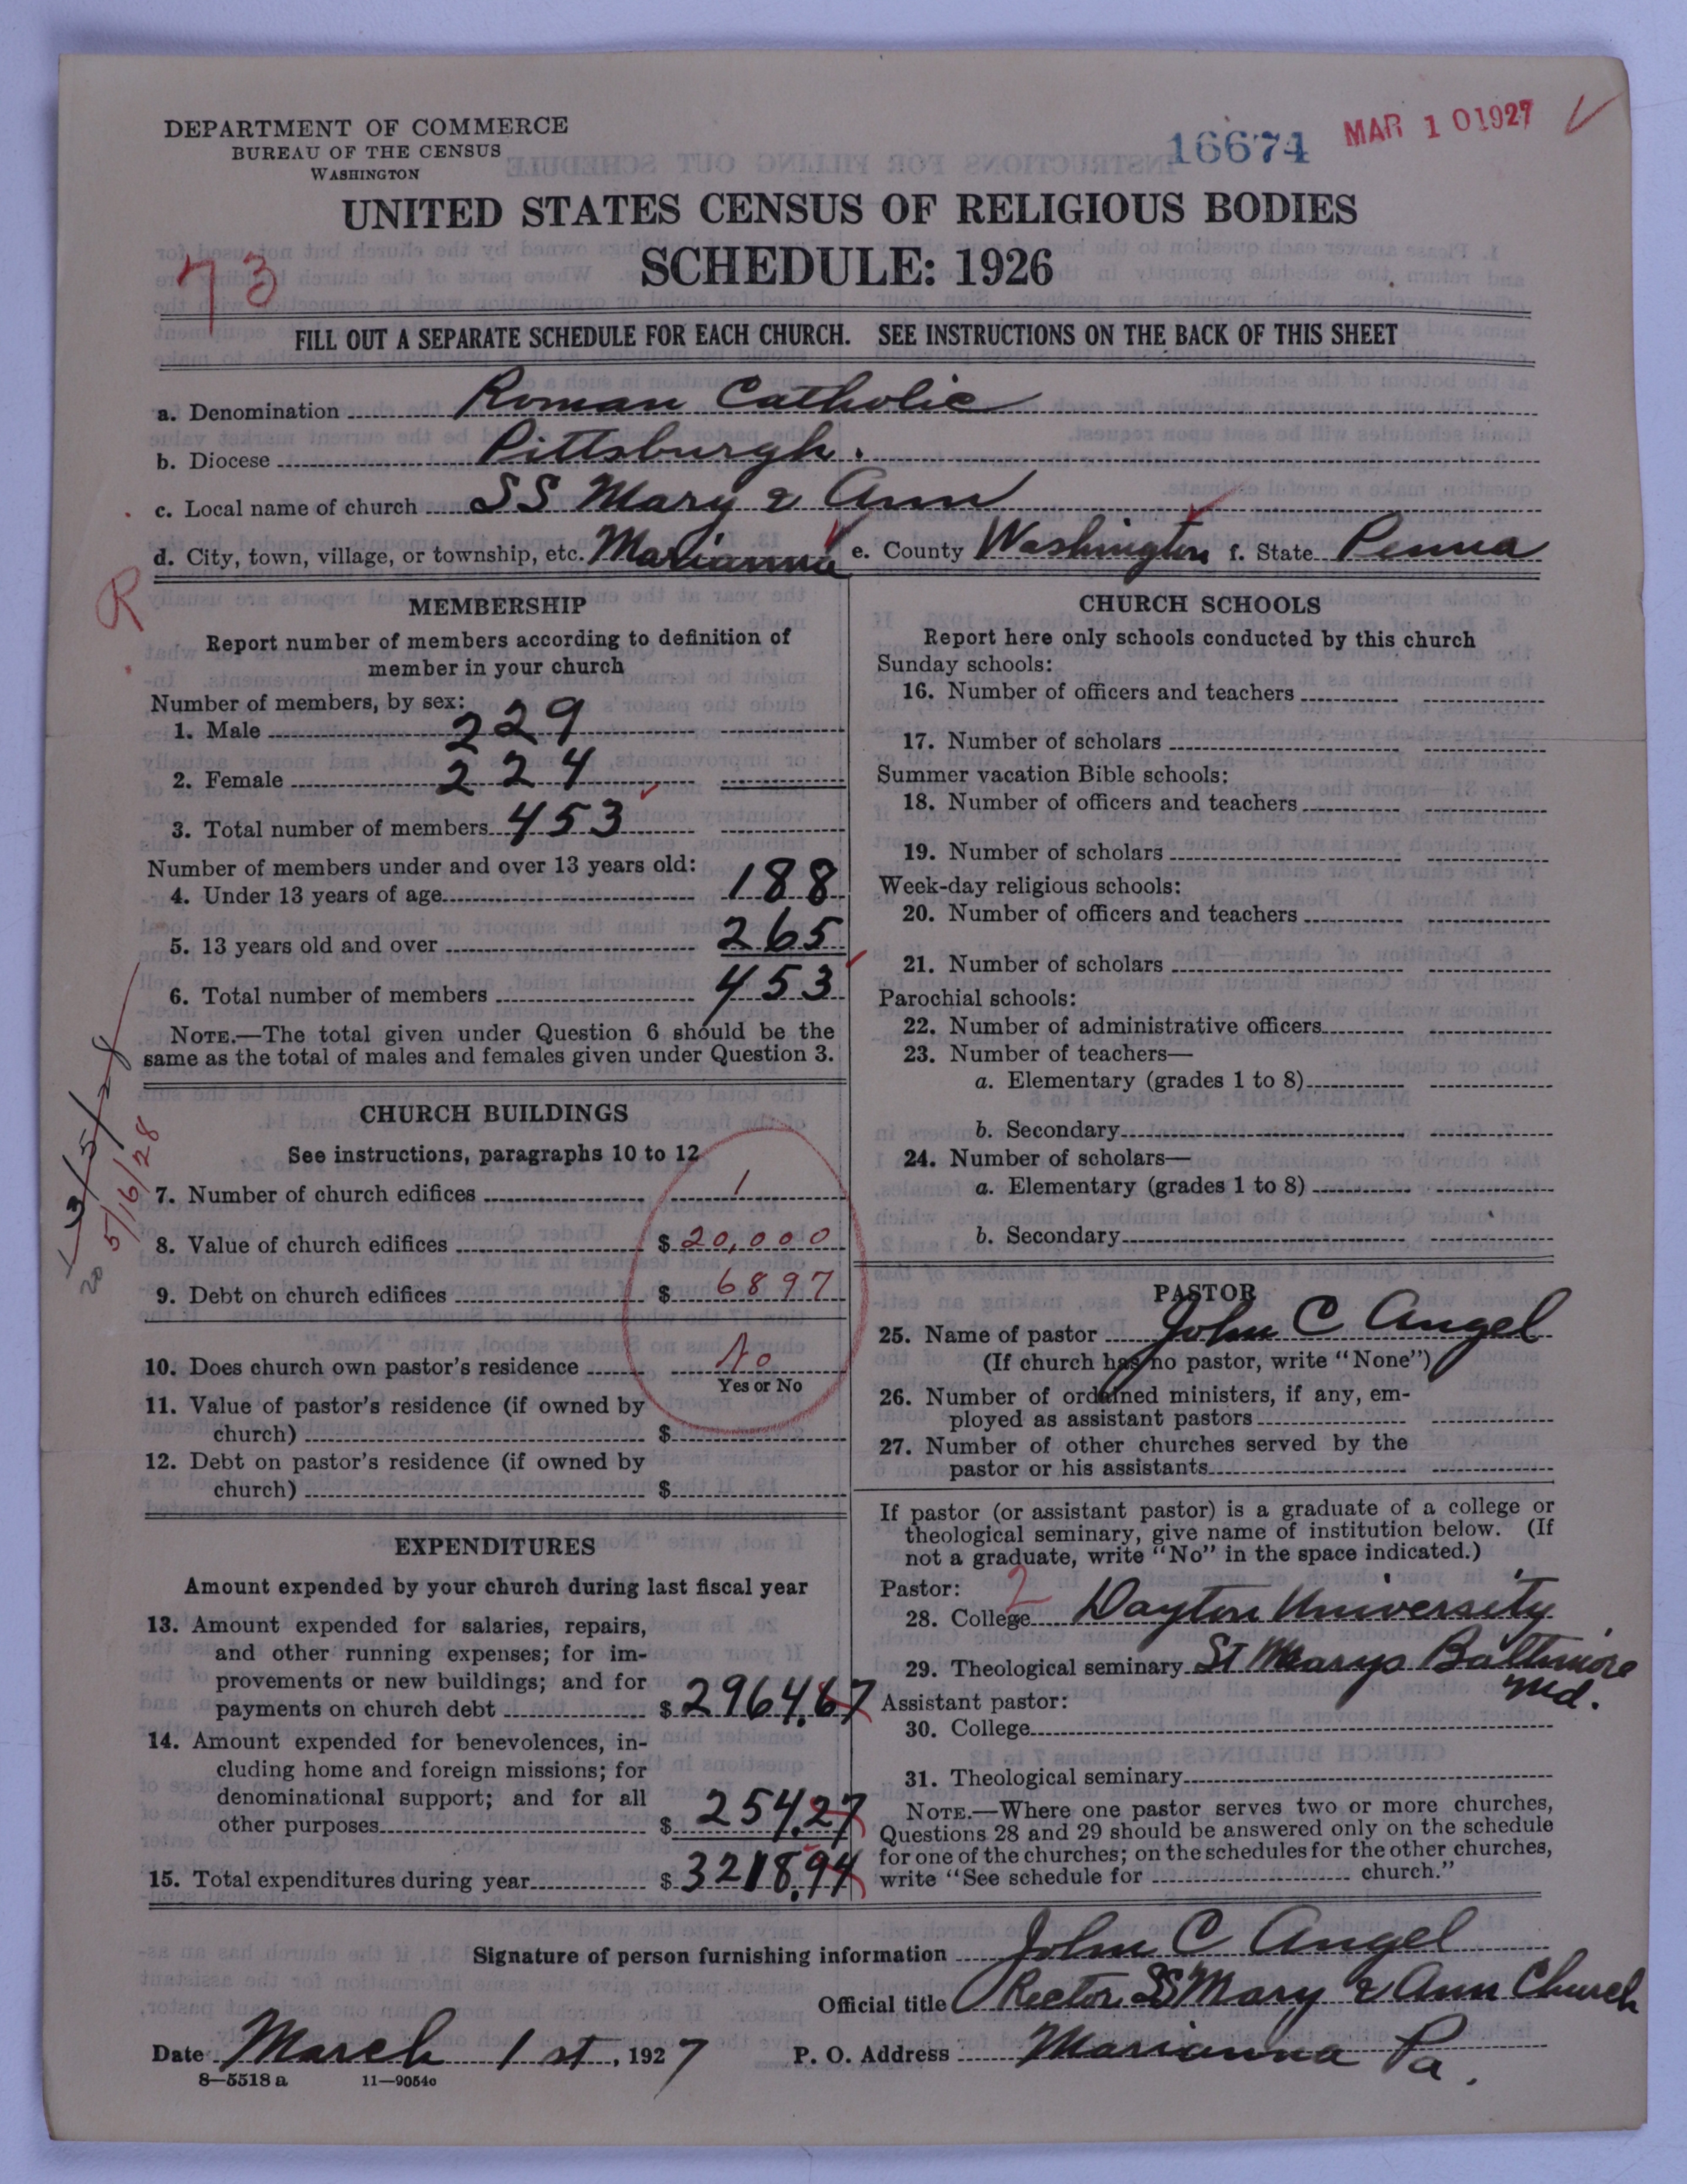 DEPARTMENT OF COMMERCE
BUREAU OF THE CENSUS
WASHINGTON
16674
MAR 10 1927
UNITED STATES CENSUS OF RELIGIOUS BODIES
SCHEDULE: 1926
73
FILL OUT A SEPARATE SCHEDULE FOR EACH CHURCH. SEE INSTRUCTIONS ON THE BACK OF THIS SHEET
a. Denomination Roman Catholic
b. Diocese Pittsburgh.
c. Local name of church SS Mary & Ann
d. City, town, village, or township, etc. Marianna e. County Washington f. State Penna
R
MEMBERSHIP
Report number of members according to definition of
member in your church
Number of members, by sex:
1. Male 229
2. Female 224
3. Total number of members 453
Number of members under and over 13 years old:
4. Under 13 years of age 188
5. 13 years old and over 265
6. Total number of members 453
NOTE.—The total given under Question 6 should be the
same as the total of males and females given under Question 3.
5/16/28
CHURCH BUILDINGS
See instructions, paragraphs 10 to 12
7. Number of church edifices 1
8. Value of church edifices $ 20,000
9. Debt on church edifices $ 6897
10. Does church own pastor's residence No
Yes or No
11. Value of pastor's residence (if owned by
church) $
12. Debt on pastor's residence (if owned by
church) $
EXPENDITURES
Amount expended by your church during last fiscal year
13. Amount expended for salaries, repairs,
and other running expenses; for im-
provements or new buildings; and for
payments on church debt $ 2964.67
14. Amount expended for benevolences, in-
cluding home and foreign missions; for
denominational support; and for all
other purposes $ 254.27
15. Total expenditures during year $ 3218.94
CHURCH SCHOOLS
Report here only schools conducted by this church
Sunday schools:
16. Number of officers and teachers
17. Number of scholars
Summer vacation Bible schools:
18. Number of officers and teachers
19. Number of scholars
Week-day religious schools:
20. Number of officers and teachers
21. Number of scholars
Parochial schools:
22. Number of administrative officers
23. Number of teachers—
a. Elementary (grades 1 to 8)
b. Secondary
24. Number of scholars—
a. Elementary (grades 1 to 8)
b. Secondary
PASTOR
25. Name of pastor John C Angel
(If church has no pastor, write "None")
26. Number of ordained ministers, if any, em-
ployed as assistant pastors
27. Number of other churches served by the
pastor or his assistants
If pastor (or assistant pastor) is a graduate of a college or
theological seminary, give name of institution below. (If
not a graduate, write "No" in the space indicated.)
Pastor: 2
28. College Dayton University
29. Theological seminary St Marys Baltimore
Md.
Assistant pastor:
30. College
31. Theological seminary
NOTE.—Where one pastor serves two or more churches,
Questions 28 and 29 should be answered only on the schedule
for one of the churches; on the schedules for the other churches,
write "See schedule for church."
Signature of person furnishing information John C Angel
Official title Rector SS Mary & Ann Church
Date March 1st, 1927 P. O. Address Marianna Pa.
8—5518 a 11—9054c